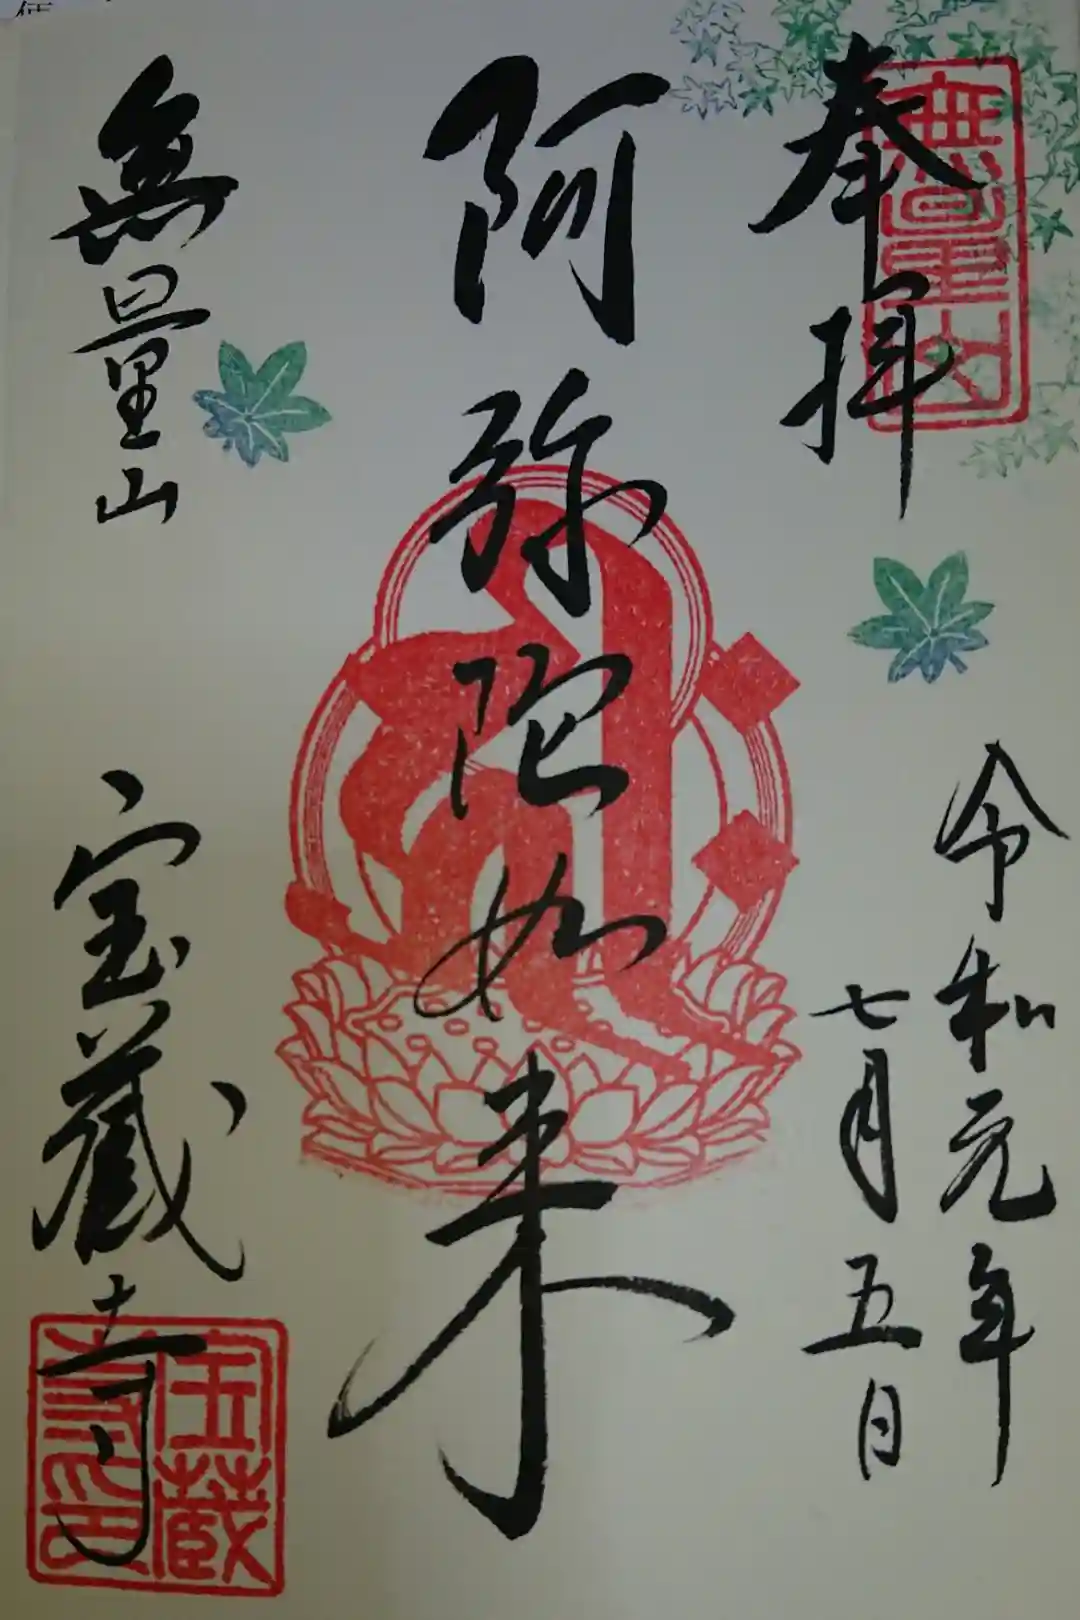 奉拝
無量山
令和元年
七月五日
阿弥陀如来
無量山
宝蔵寺
宝蔵寺印